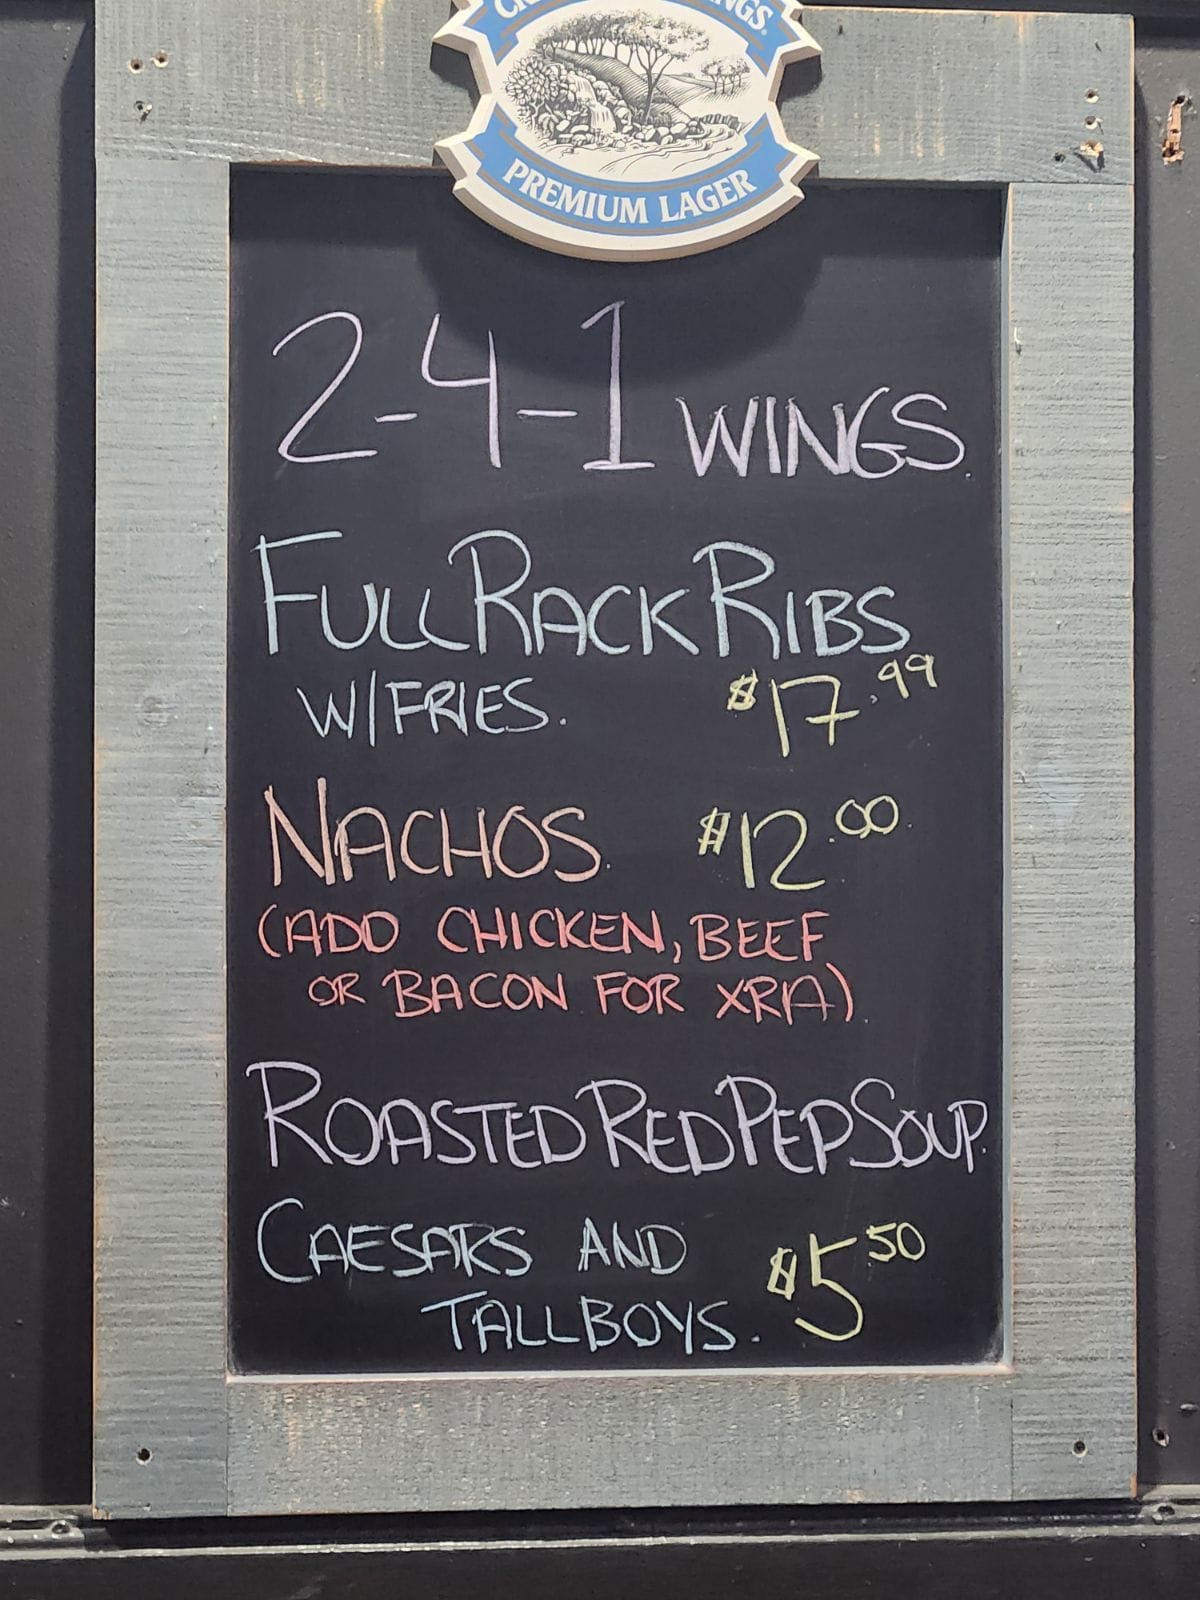 PREMIUM LAGER
2-4-1 WINGS.
FULL RACK RIBS
W/FRIES. $17.99
NACHOS. $12.00
(ADD CHICKEN, BEEF
OR BACON FOR XRA)
ROASTED RED PEP SOUP.
CAESARS AND
TALLBOYS. $5.50